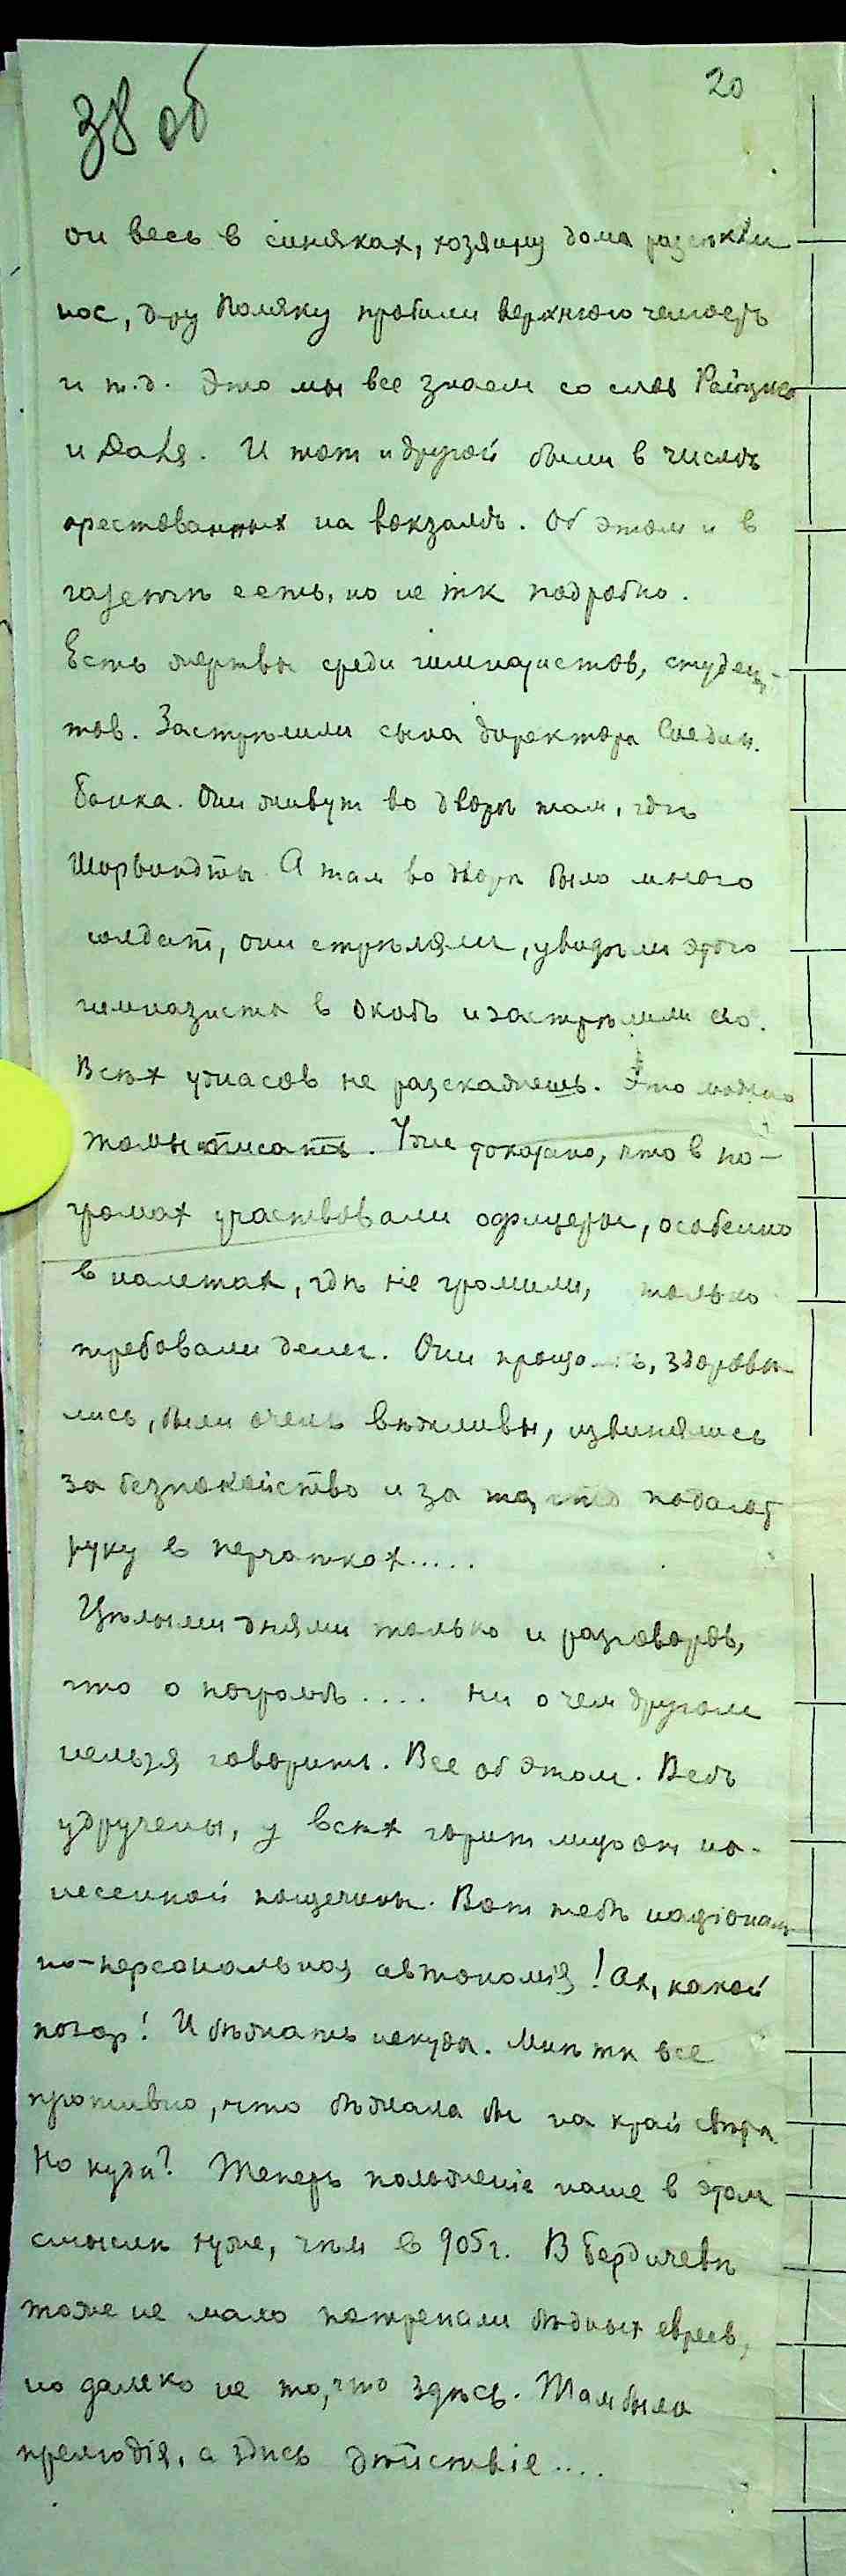 20
38 об
он весь в синяках, хозяину дома разсекли
нос, д-ру Поляку пробили верхнюю челюсть
и т.д. Это мы все знаем со слов
и Даля. И тот и другой были в числѣ
арестованных на вокзалѣ. Об этом и в
газетѣ есть, но не тк подробно.
Есть жертвы среди гимназистов, студен-
тов. Застрѣлили сына директора Соедин.
банка. Они живут во дворѣ там, гдѣ
Шорвиндты. А там во дворѣ было много
солдат, они стрѣляли, увидѣли этого
гимназиста в окнѣ и застрѣлили его.
Всѣх ужасов не разскажешь. Это можно
томы писать. Уже доказано, что в по-
громах участвовали офицеры, особенно
в налетах, гдѣ не громили, только
требовали денег. Они, здорова
лись, были очень вѣжливы, извинялись
за безпокойство и за подают
руку в перчатках.....
Цѣлыми днями только и разговоров,
что о погромѣ.... Ни о чем другом
нельзя говорить. Все об этом. Всѣ
удручены, у всѣх горит лицо от на-
несенной пощечины. Вот тебѣ націонал
но-персональная автономія! Ах, какой
позор! И бѣжать некуда. Мнѣ тк все
противно, что бѣжала бы на край свѣта
Но куда? Теперь положеніе наше в этом
смыслѣ хуже, чѣм в 905 г. В Бердичевѣ
тоже не мало потрепали бѣдных евреев,
но далеко не то, что здѣсь. Там была
прелюдія, а здѣсь дѣйствіе....